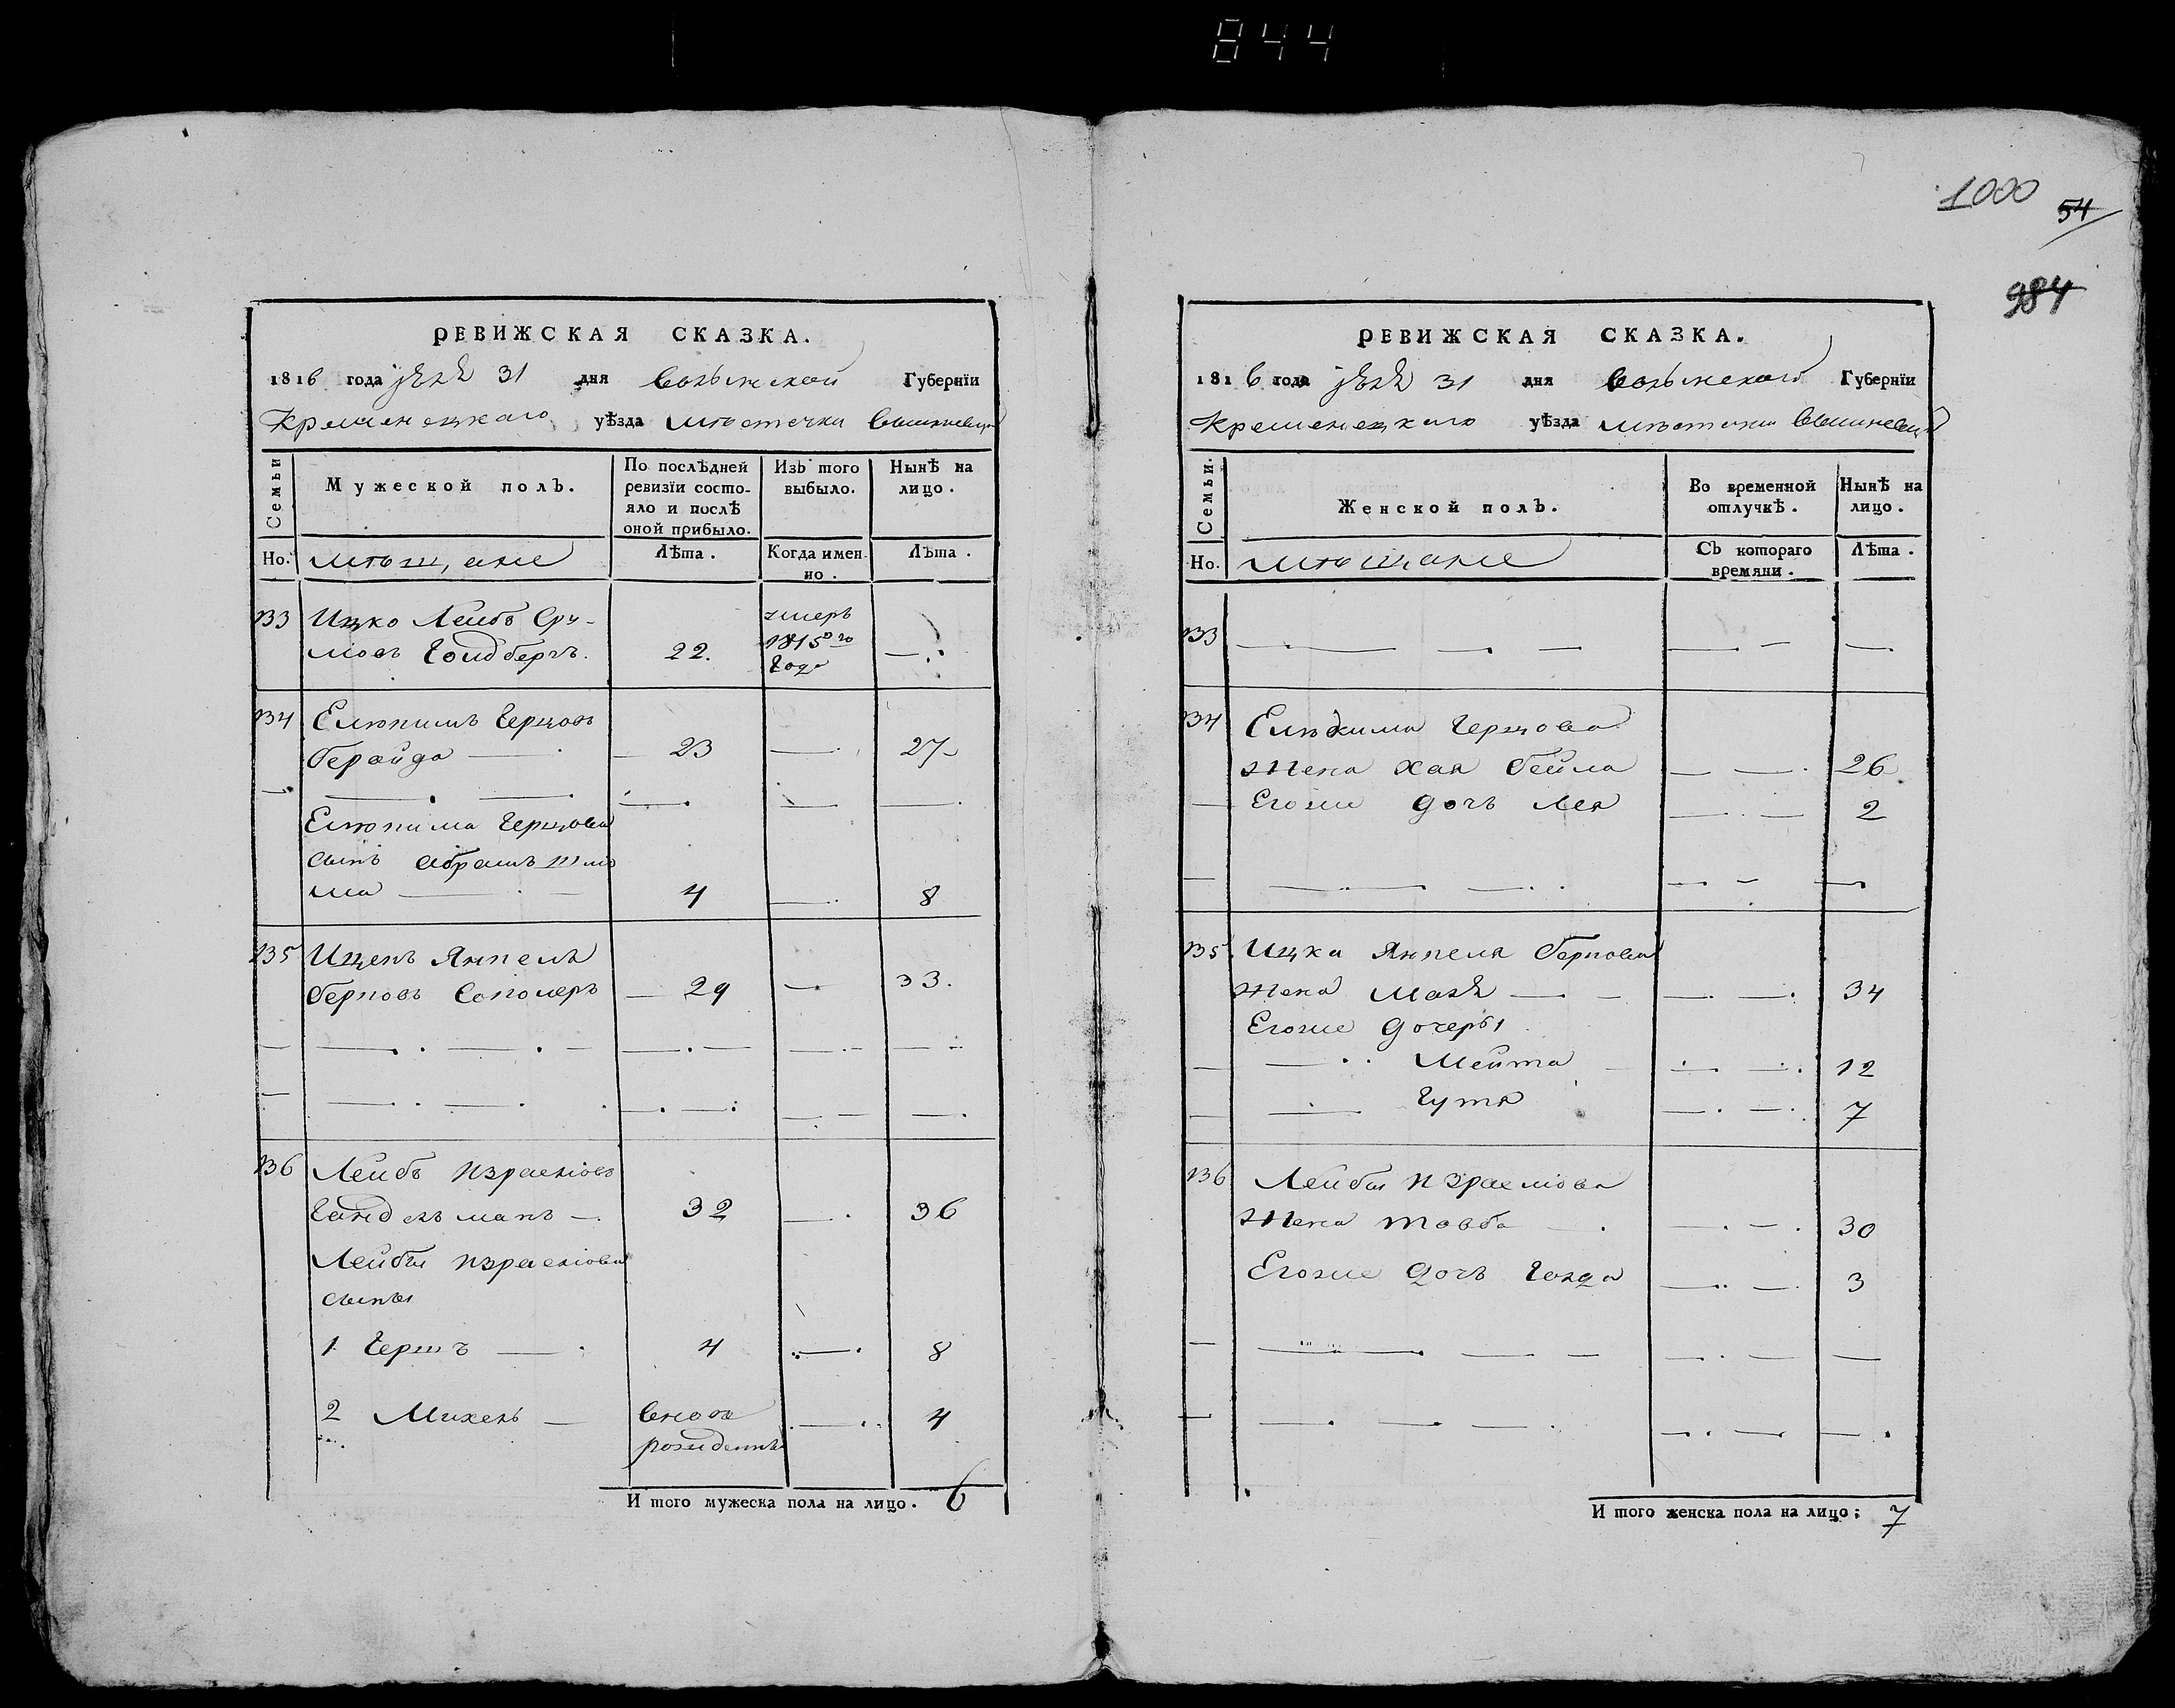 844
1000
54
984
РЕВИЖСКАЯ СКАЗКА.
1816 года Іюля 31 дня Волынской Губернїи
Кременецкаго уѣзда мѣстечка Вишневца
Семьи
Мужеской полъ.
По послѣдней ревизїи состояло и послѣ оной прибыло.
Изъ того выбыло.
Нынѣ на лицо.
Но.
мѣщане
Лѣта.
Когда именно.
Лѣта.
133 Ицко Лейбъ Сру-
мовъ Голдбергъ. 22.
умеръ
1815го
года
134 Елюкимъ Герцовъ
23 27
Елюкима Герцова
сынъ Абрамъ Шлю
ма 4 8
135 Ицекъ Янкель
Берковъ 29 33.
136 Лейбъ Израелiовъ
Гандельманъ 32 36
Лейбы Израелiова
сыны
1 Гершъ 4 8
2 Михель вновь 4
рожденный
И того мужеска пола на лицо. 6
РЕВИЖСКАЯ СКАЗКА.
1816 года Іюля 31 дня Волынской Губернїи
Кременецкаго уѣзда мѣстечка Вишневца
Семьи.
Женской полъ.
Во временной отлучкѣ.
Нынѣ на лицо.
Но.
мѣщане
Съ котораго времяни.
Лѣта.
133
134 Елюкима Герцова
жена Хая Бейла 26
Егоже дочь Лея 2
135 Ицка Янкеля Беркова
жена Маля 34
Егоже дочеры
Мейта 12
Гутя 7
136 Лейбы Израелiова
жена Товба 30
Егоже дочь Голда 3
И того женска пола на лицо; 7